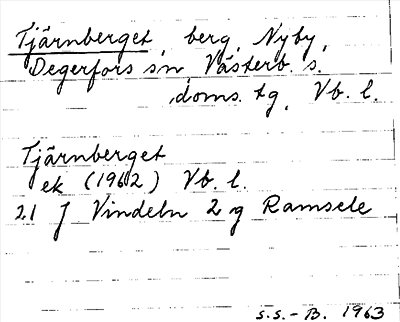 Tjärnberget, berg, Nyby,
Degerfors sn Västerb. s.
doms. tg, Vb. l.
Tjärnberget
ek (1962) Vb. l.
21 J Vindeln 2 g Ramsele
S.S.-B. 1963